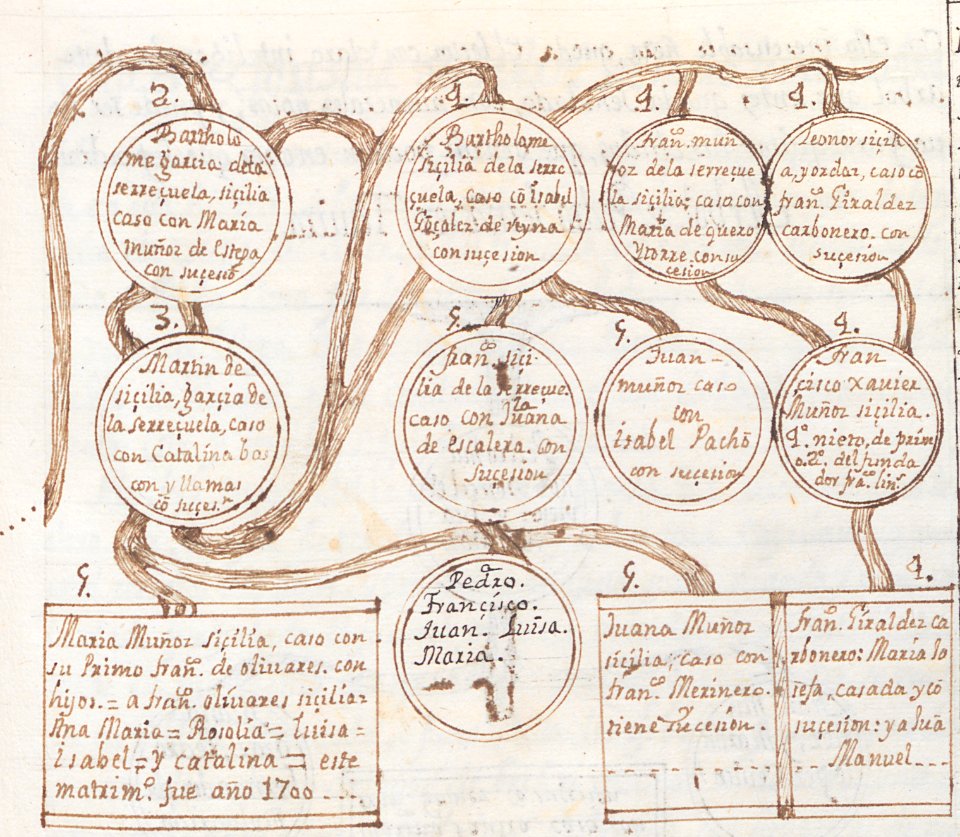 2.
Bartholo
me garcia dela
serreçuela, siçilia
caso con María
muñoz de Estepa
con suçesiō
4.
Bartholome
Siçilia dela serre
çuela, caso cō Isabel
Gōçalez de Reyna
con suçesion
4.
franᶜᵒ. muñ
oz dela serreçue
la siçilia: caso con
María de quero
y torre. con su
cesion
4.
Leonor siçili
a, y ordaz, caso cō
franᶜᵒ. Giraldez
carbonero. con
suçesion
3.
Martin de
siçilia, garçia de
la serreçuela, caso
con Catalina bas
con y llamas
cō suçesⁿ.
5.
franᶜᵒ. siçi-
lia de la serreçue.
la
caso con Juana
de Escalera. con
suçesion
5.
Juan
muñoz caso
con
isabel Pachō
con suçesion
4.
fran
çisco xavier
Muñoz siçilia.
4º. nieto, de prim
o. 2º. del funda
dor fraᶜᵒ. linˢ.
5.
Maria Muñoz siçilia, caso con
su Primo franᶜᵒ. de olivares. con
hijos. = a franᶜᵒ. olivares siçilia=
Ana Maria = Rosolia = luisa =
Isabel = y catalina = este
matrimº. fue año 1700
Pedro.
Françisco.
Juan. Luisa.
Maria.
5.
Juana Muñoz
siçilia; caso con
franᶜᵒ. Merinero.
tiene suçesion.
4.
franᶜᵒ. Giraldez ca
rbonero: María Jo
sefa, casada y cō
suçesion: y a Juā
Manuel